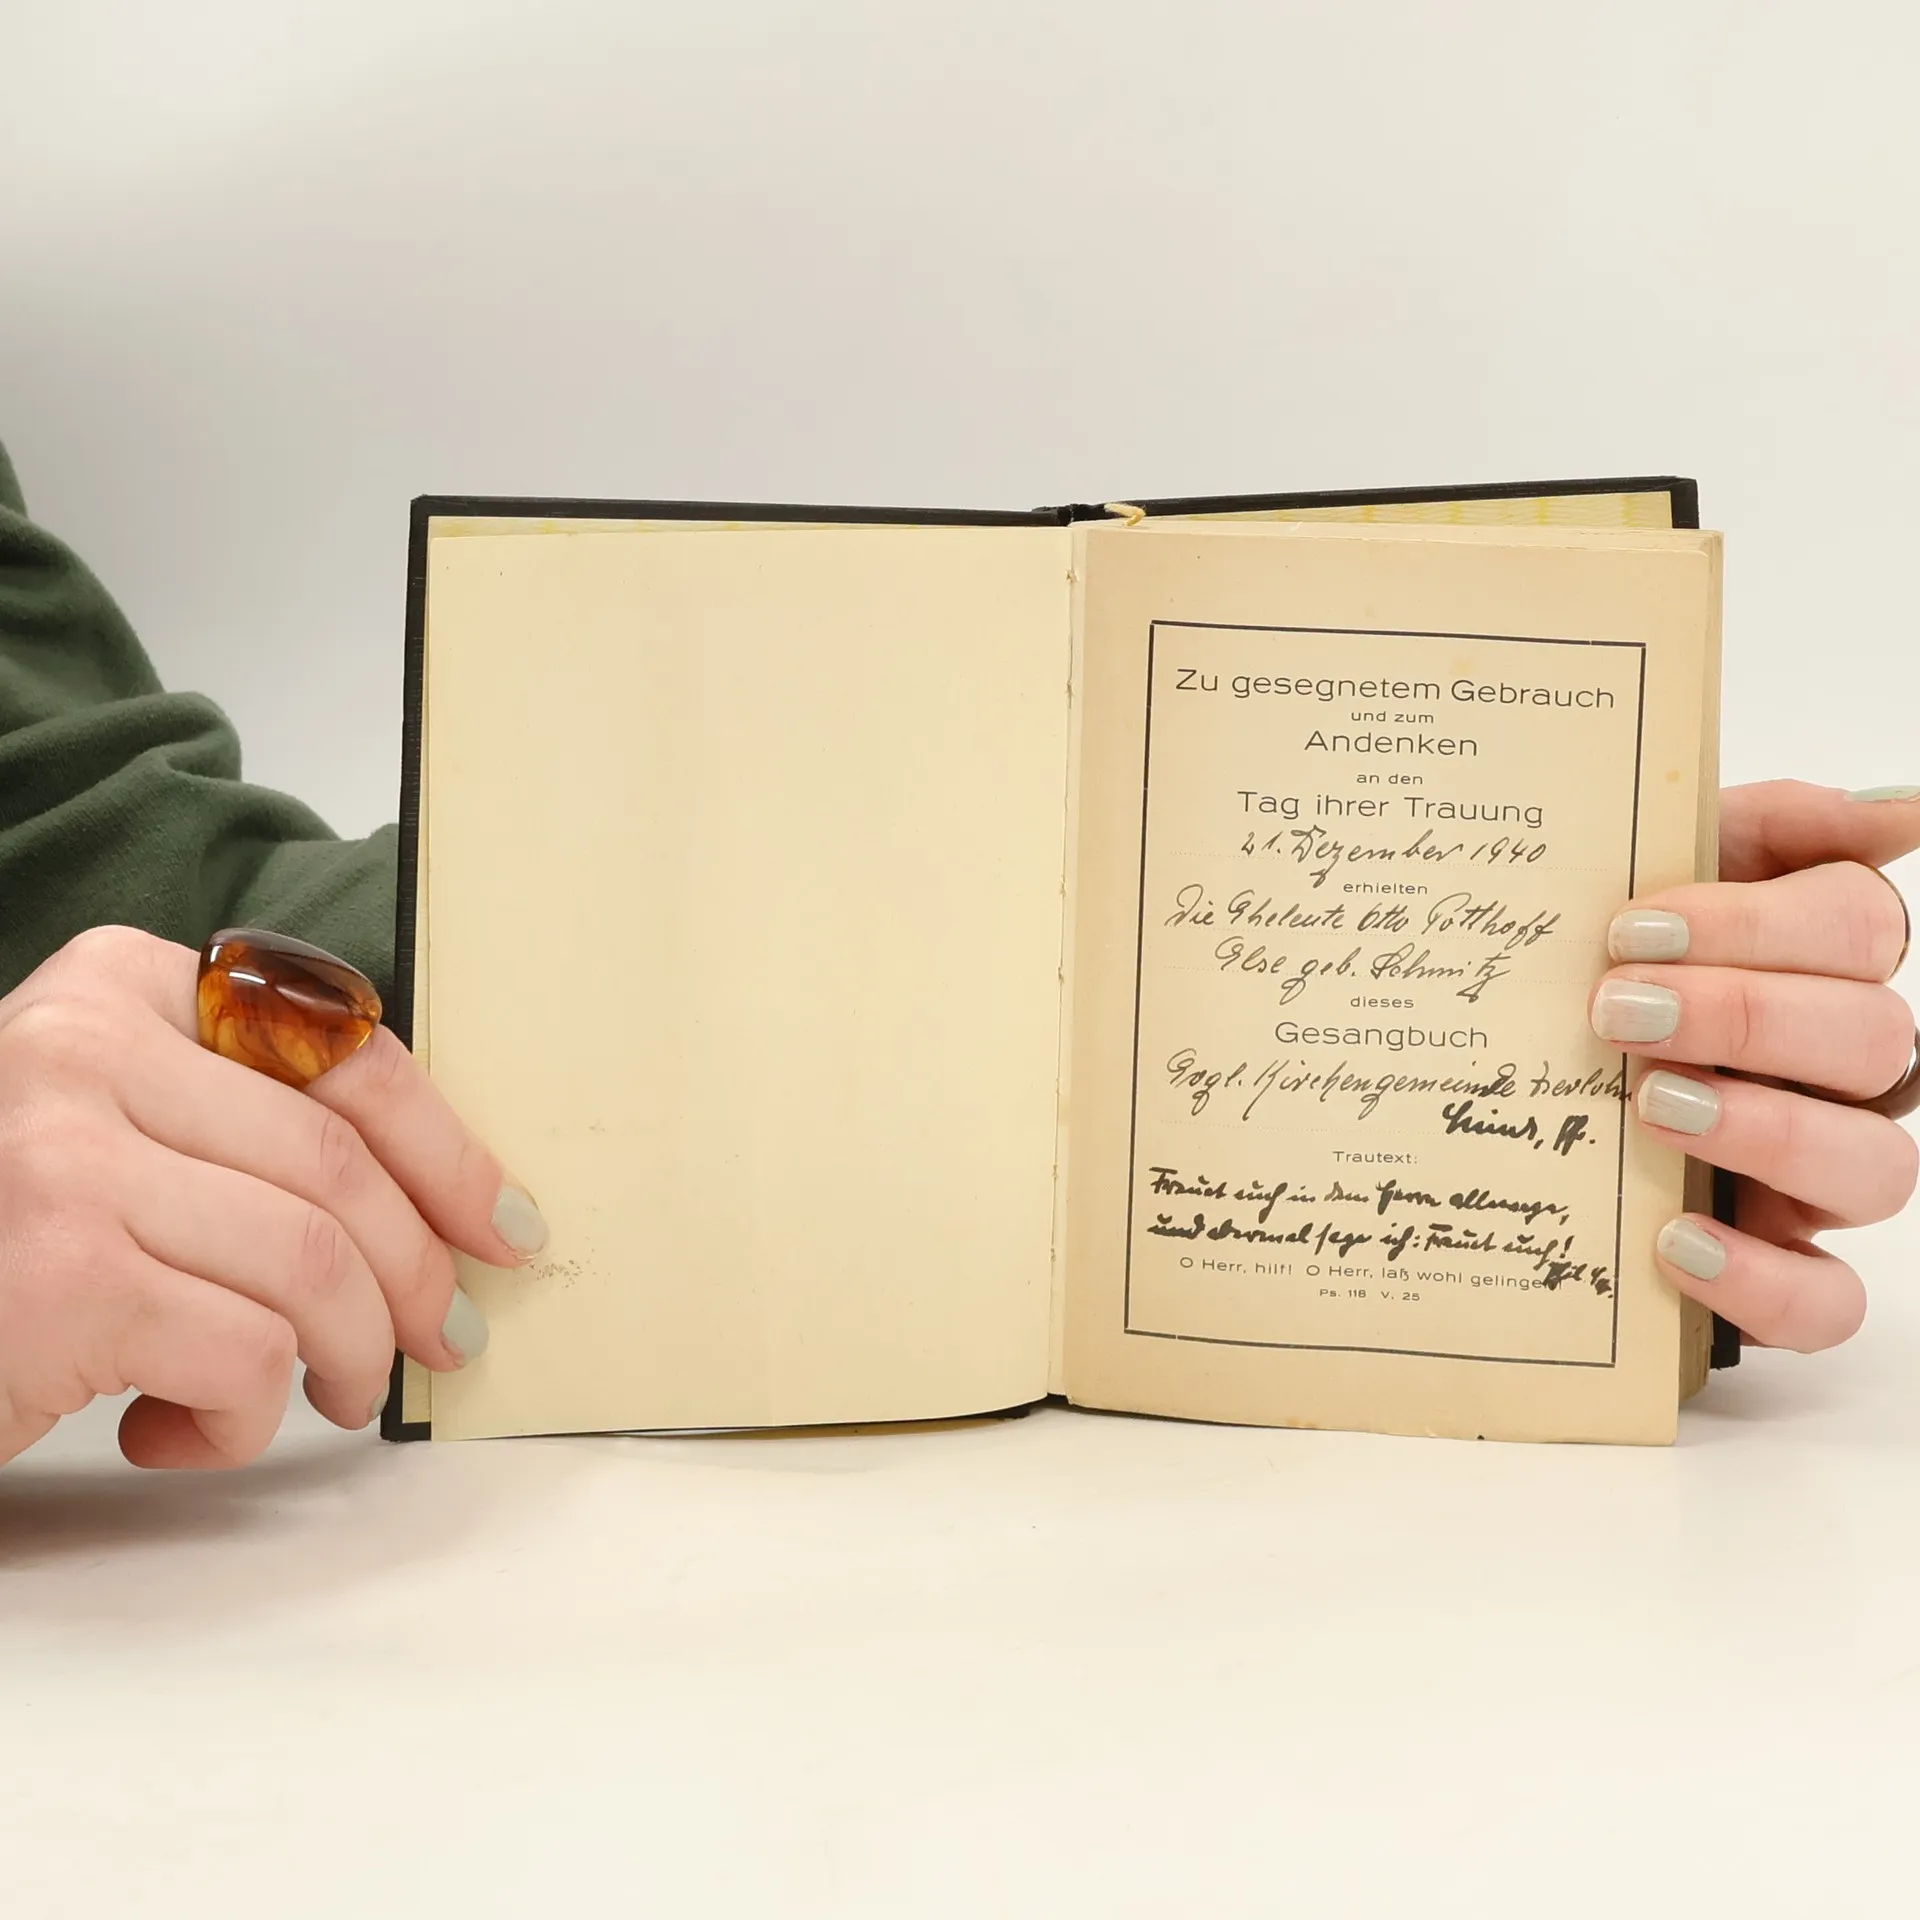 Zu gesegnetem Gebrauch
und zum
Andenken
an den
Tag ihrer Trauung
21. Dezember 1940
erhielten
Die Eheleute Otto Potthoff
Else geb. Schmitz
dieses
Gesangbuch
Evgl. Kirchengemeinde Iserlohn
Pf.
Trautext:
Freuet euch in dem Herrn allewege,
und abermal sage ich: Freuet euch!
Phil 4,4.
O Herr, hilf! O Herr, laß wohl gelingen
Ps. 118 V. 25